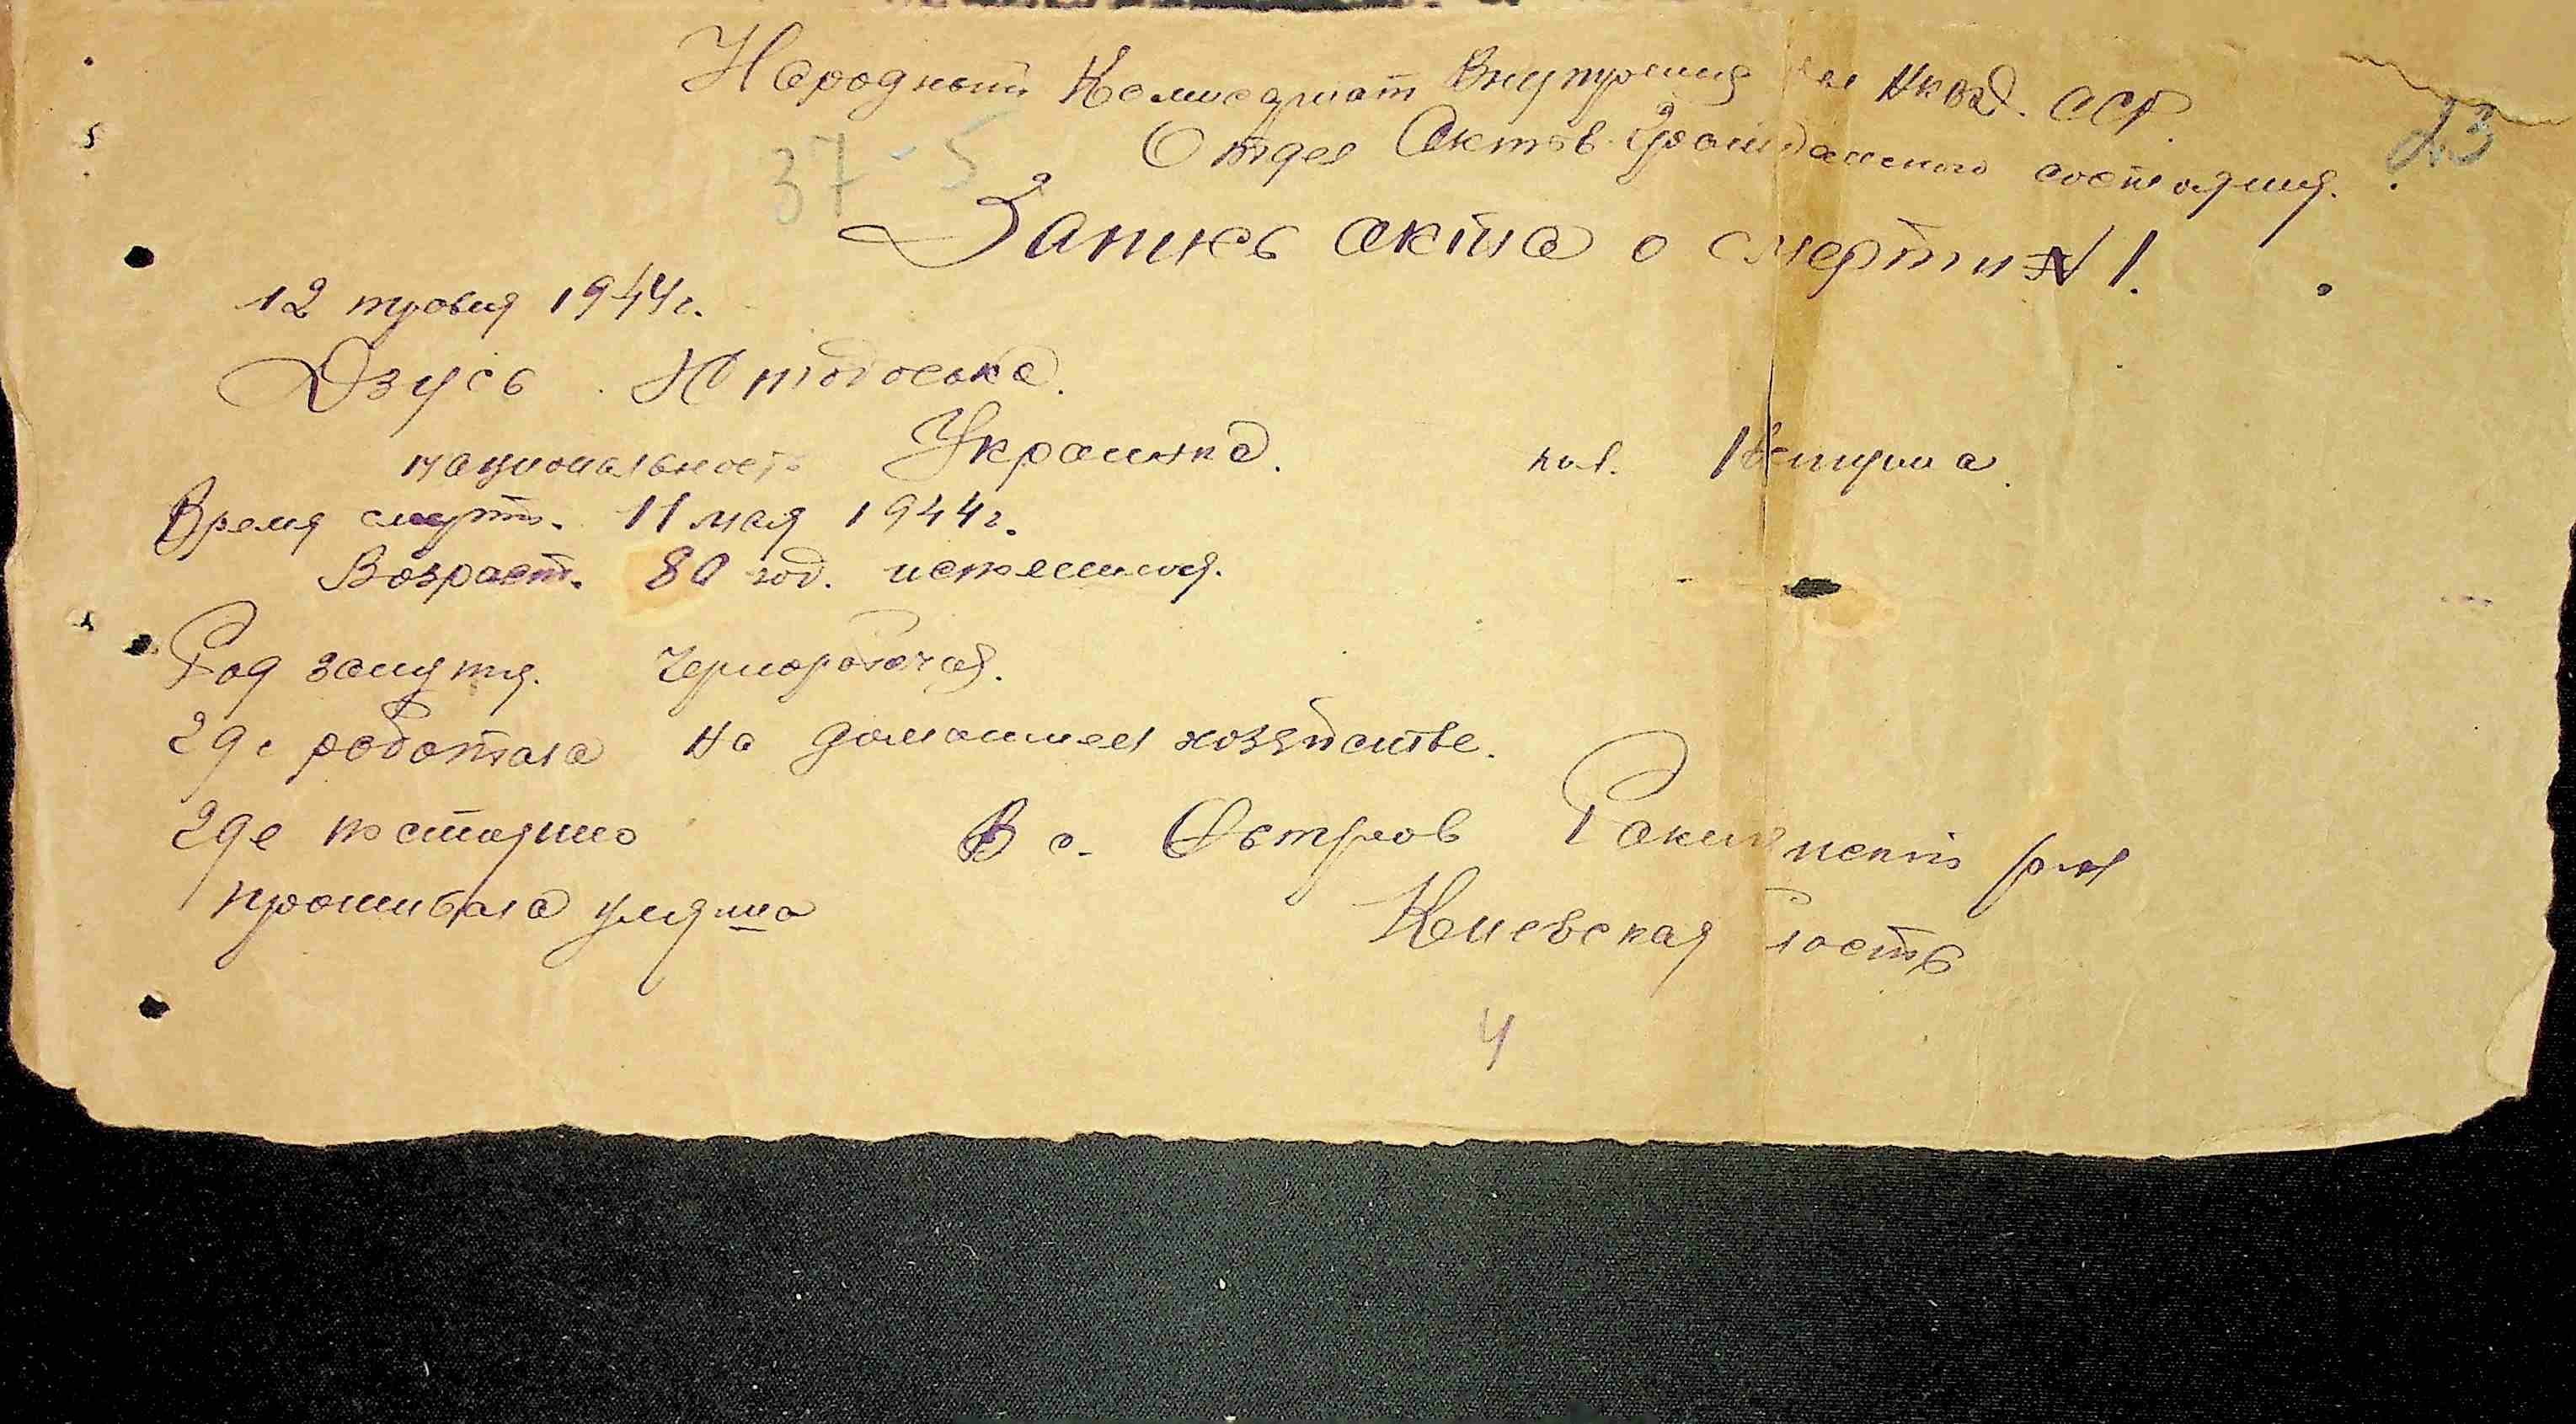 Народный Комисариат Внутрения НКВД. ССР.
Отдел Актов Гражданского состояния.
23
37-5
Запись акта о смерти № 1.
12 травня 1944 г.
Дзусь
национальность Украинка. пол. Женщина.
Время смерт. 11 мая 1944 г.
Возраст. 80 год.
Род занятия. Чернорабочая.
где работала на домашнем хозяйстве.
где постоянно В с. Остров Ракитнянский
проживала умерша Киевская
4